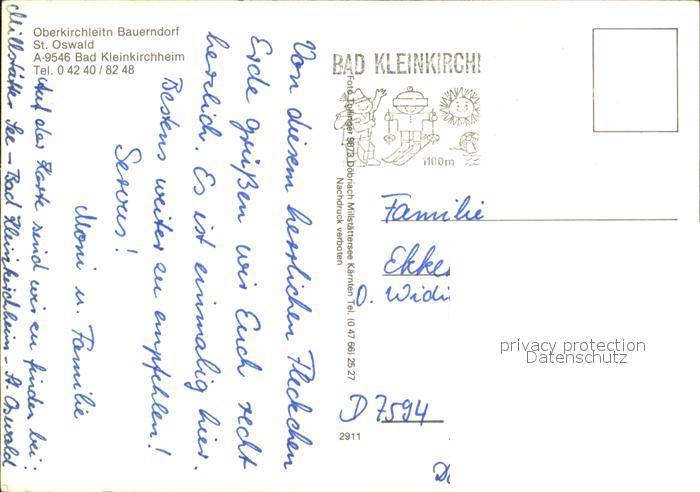 Oberkirchleitn Bauerndorf
St. Oswald
A-9546 Bad Kleinkirchheim
Tel. 0 42 40 / 82 48
Von diesem herrlichen Fleckchen
Erde grüßen wir Euch recht
herzlich. Es ist einmalig hier.
Bestens weiter zu empfehlen!
Servus!
Moni u. Familie
Auf der Karte sind wir zu finden bei:
Millstätter See – Bad Kleinkirchheim – St. Oswald
BAD KLEINKIRCHH
1100m
9873 Döbriach Millstättersee Kärnten Tel. (0 47 66) 25 27
Nachdruck verboten
Familie
Ekke
D. Widi
D 7594
2911
privacy protection
Datenschutz